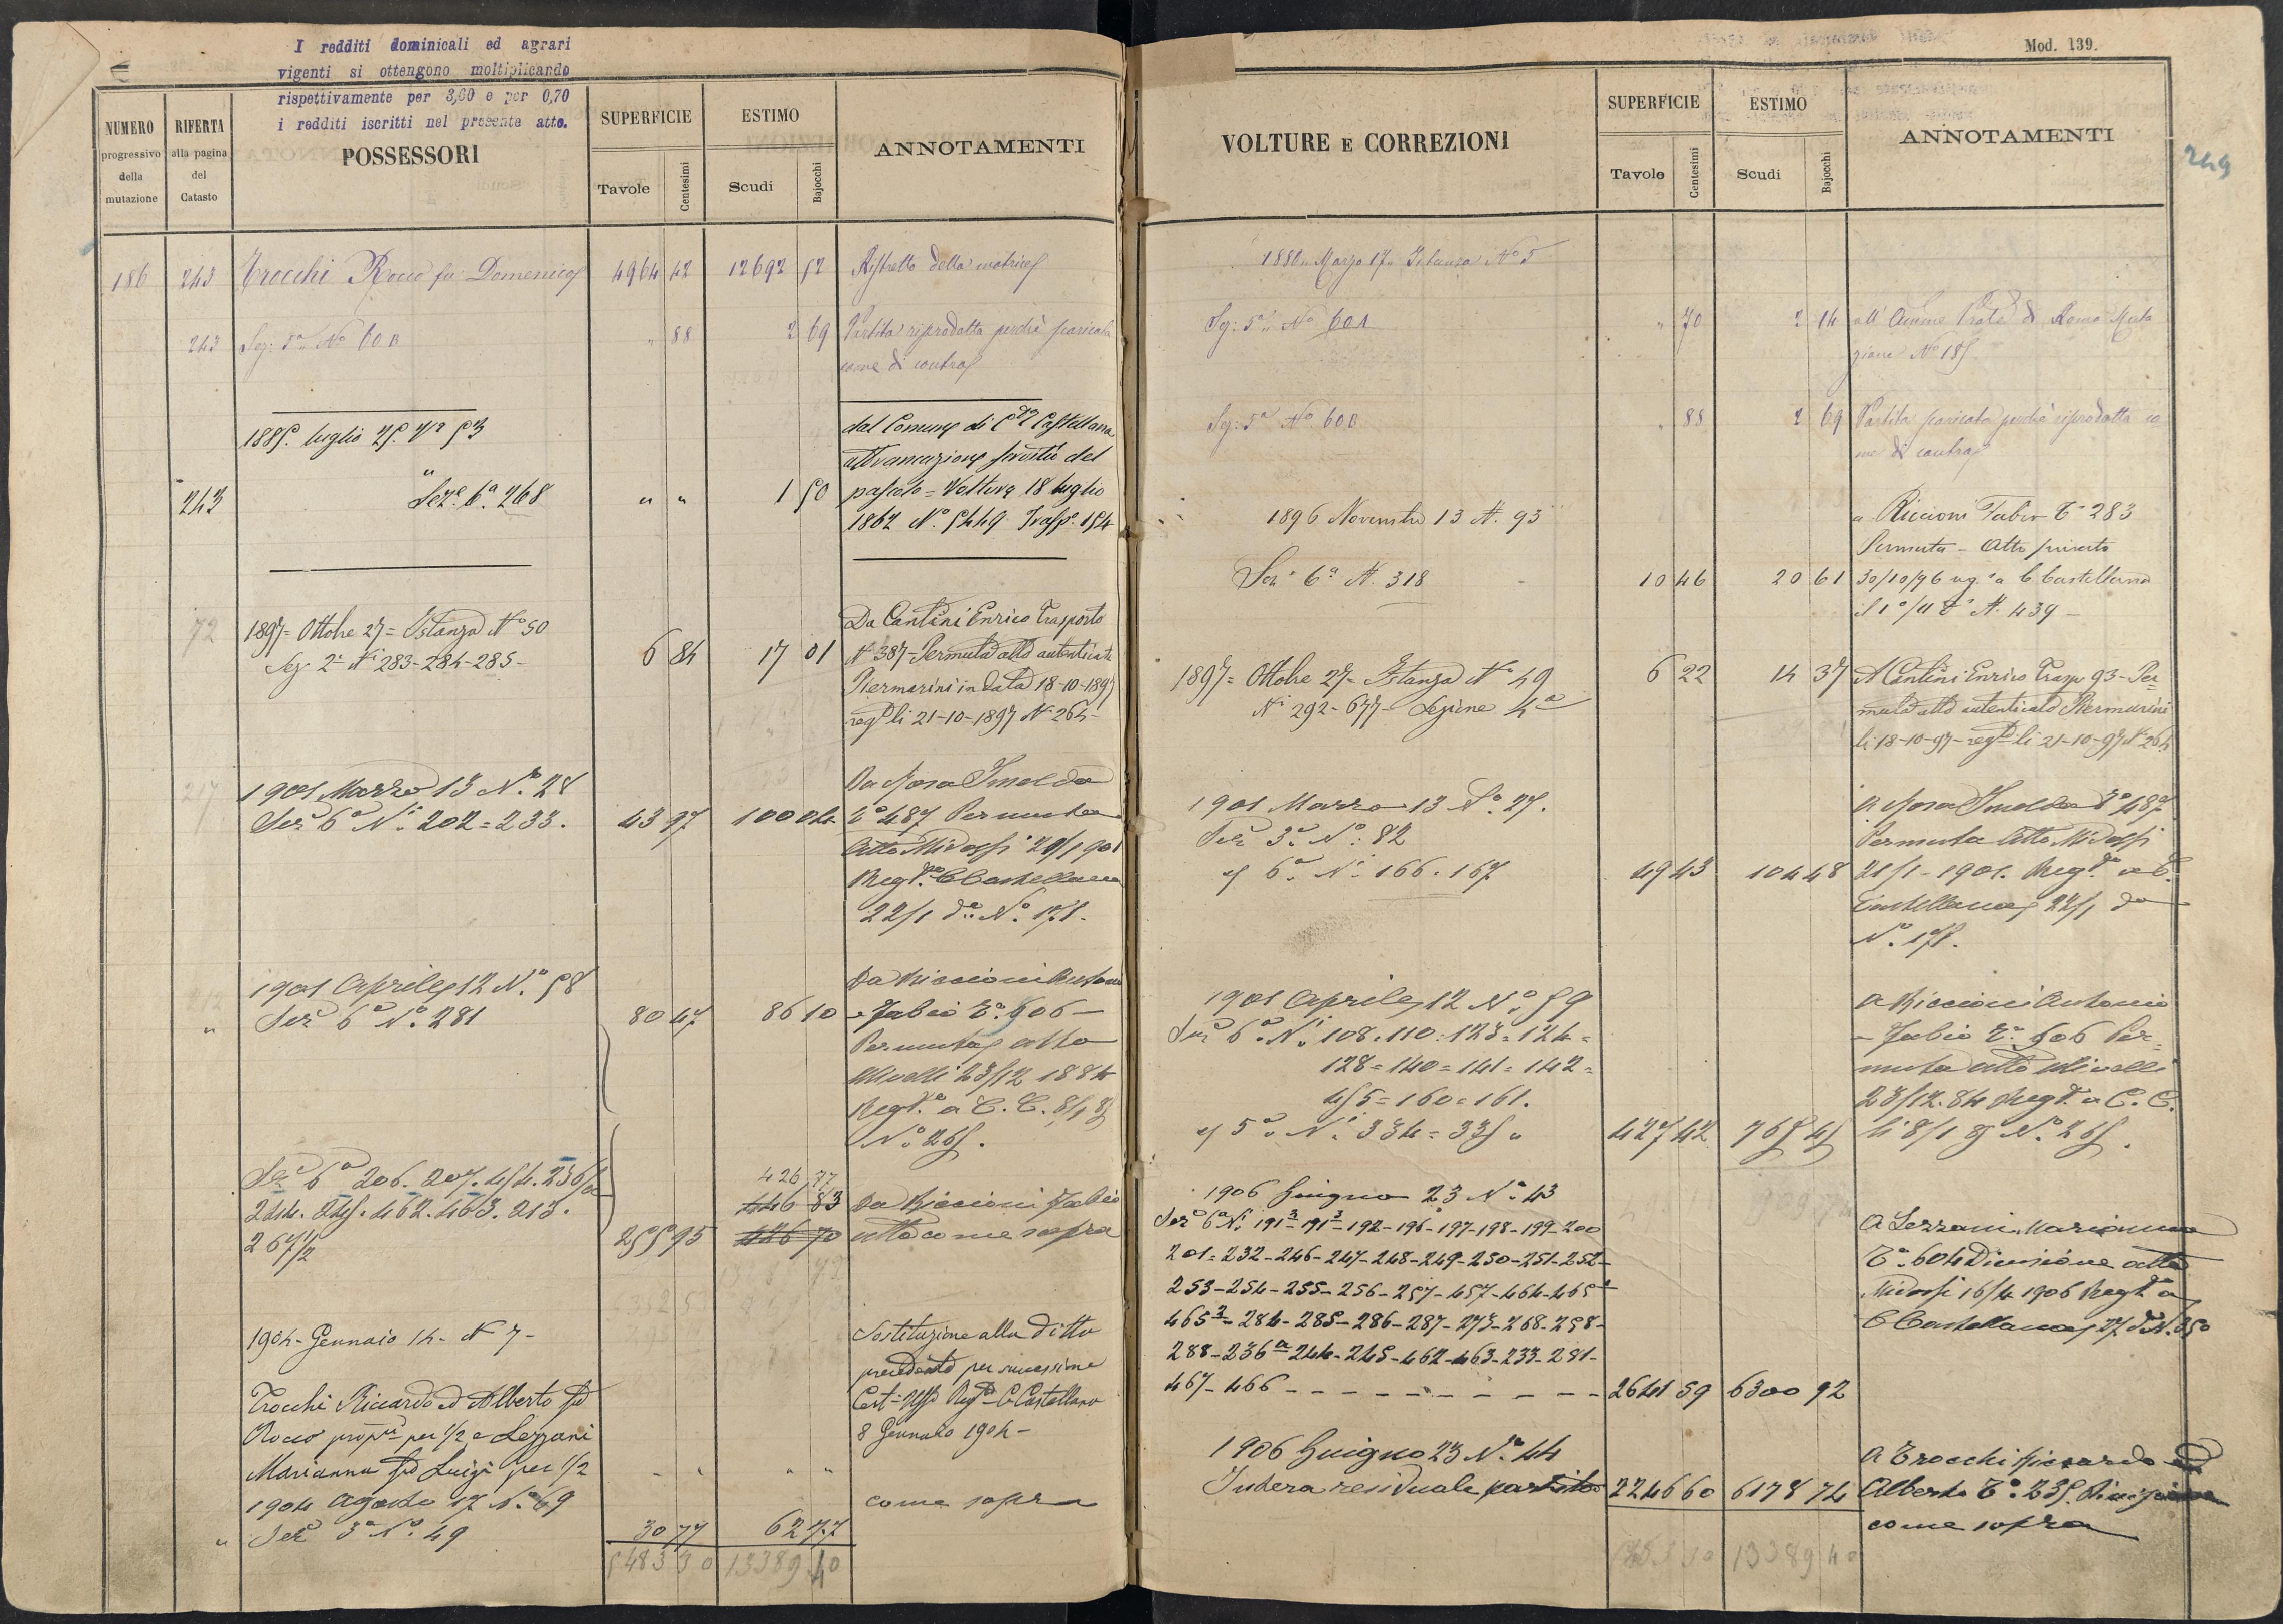 I redditi dominicali ed agrari
vigenti si ottengono moltiplicando
rispettivamente per 3,60 e per 0,70
i redditi iscritti nel presente atto.
NUMERO progressivo della mutazione
RIFERTA alla pagina del Catasto
POSSESSORI
SUPERFICIE
Tavole Centesimi
ESTIMO
Scudi Bajocchi
ANNOTAMENTI
186 243 Trocchi Rocco fu Domenico 4964 42 12692 52 Ristretto della matrice
243 Sez: 5a No 60 B " 88 2 69 Partita riprodotta perchè scaricata
come di contro
1885. luglio 25. No 53
dal Comune di Cta Castellana
affrancazione servitù del
243 Seze. 6a. 268 " " 1 50 pascolo = Voltura 18 luglio
1862 No. 5449 Trasp. 154
72 1897 = Ottobre 27 = Istanza No 50
Sez. 2a Ni 283-284-285-
6 84 17 01
Da Cantini Enrico Trasporto
N 387 - Permuta atto autenticato
Piermarini in data 18-10-1897
regto li 21-10-1897 No 264-
217 1901 Marzo 13 No. 28
Sez 6a Ni. 202 = 233. 43 97 100 04
Da Rosa Imolda
To 487 Permuta
Atto Midossi 21/1 901
Regto. C Castellana
22/1 do. No. 178.
1901 Aprile 12 No. 58
" Sez 6a No. 281 80 47 86 10
Da Riccioni Antonio
e Fabio To. 606 -
Permuta atto
23/12 1884
Regto. a C. C. 8/1 85
No. 265.
Sez 6a 206. 207. 454. 236/a
244. 245. 462. 463. 213.
267/2
255 95
426,77
446 83
426 70
Da Riccioni Fabio
atto come sopra
1904 - Gennaio 14 - N 7 -
Sostituzione alla ditta
precedente per successione
Cert. Uffo Regto C Castellana
8 Gennaio 1904 -
Trocchi Riccardo ed Alberto fu
Rocco propri per 1/2 e Lezzani
Marianna fu Luigi per 1/2
1904 Agosto 17 No 69 come sopra
" Sez 3a No. 49 30 77 62 77
5483 30 13389 40
Mod. 139.
VOLTURE E CORREZIONI
SUPERFICIE
Tavole Centesimi
ESTIMO
Scudi Bajocchi
ANNOTAMENTI
249
1880 Marzo 17 Istanza No 5
Sez: 5a No 60 A " 70 2 14 all' Amme di Roma Muta
zione No 185
Sez: 5a No 60 B " 88 2 69 Partita scaricata perchè riprodotta co
me di contro
1896 Novembre 13 N. 93
a Riccioni Fabio To 283
Permuta - Atto privato
Sez. 6a N. 318 10 46 20 61 30/10/96 reg. a C Castellana
N. 439 -
1897 = Ottobre 27 = Istanza No 49 6 22 14 37 A Cantini Enrico Trasp 93 - Per
Ni 292-677 - Sezione 4a muta atto autenticato Piermarini
li 18-10-97 - regto li 21-10-97 No 264
1901 Marzo 13 No. 27.
Sez 3a No. 82
" 6a Ni 166. 167 49 43 104 48
a Rosa Imolda To 487
Permuta Atto Midossi
21/1 - 1901. Regto. a C.
Castellana 22/1 do
No. 178.
1901 Aprile 12 No. 59
Sez 6a. Ni. 108. 110. 123 = 124 =
128 = 140 = 141 = 142 =
455 = 160 = 161.
" 5a. Ni. 334 = 335 " 427 42 765 45
a Riccioni Antonio
e Fabio To. 606 Per=
muta atto
23/12. 84 Regto. a C. C.
li 8/1 85 No. 265.
1906 Giugno 23 No. 43
Sez 6a Ni. 191 2 - 191 3 - 192 - 196 - 197 - 198 - 199 - 200
201 = 232 - 246 - 247 - 248 - 249 - 250 - 251 - 252 -
253 - 254 - 255 - 256 - 257 - 457 - 464 - 465 1
465 3 - 284 - 285 - 286 - 287 - 273 - 268 - 258 -
288 - 236 a 244 - 245 - 462 - 463 - 233 - 281 -
467 - 466 - - - - - - - - - - 2641 59 6300 92
A Lezzani Marianna
To. 604 Divisione atto
Midossi 16/4 1906 Regto a
C Castellana 27 do N. 350
1906 Giugno 23 No. 44
Intera residuale partita 2246 60 6178 74
A Trocchi Riccardo ed
Alberto To. 235. Divisione
come sopra
13389 40